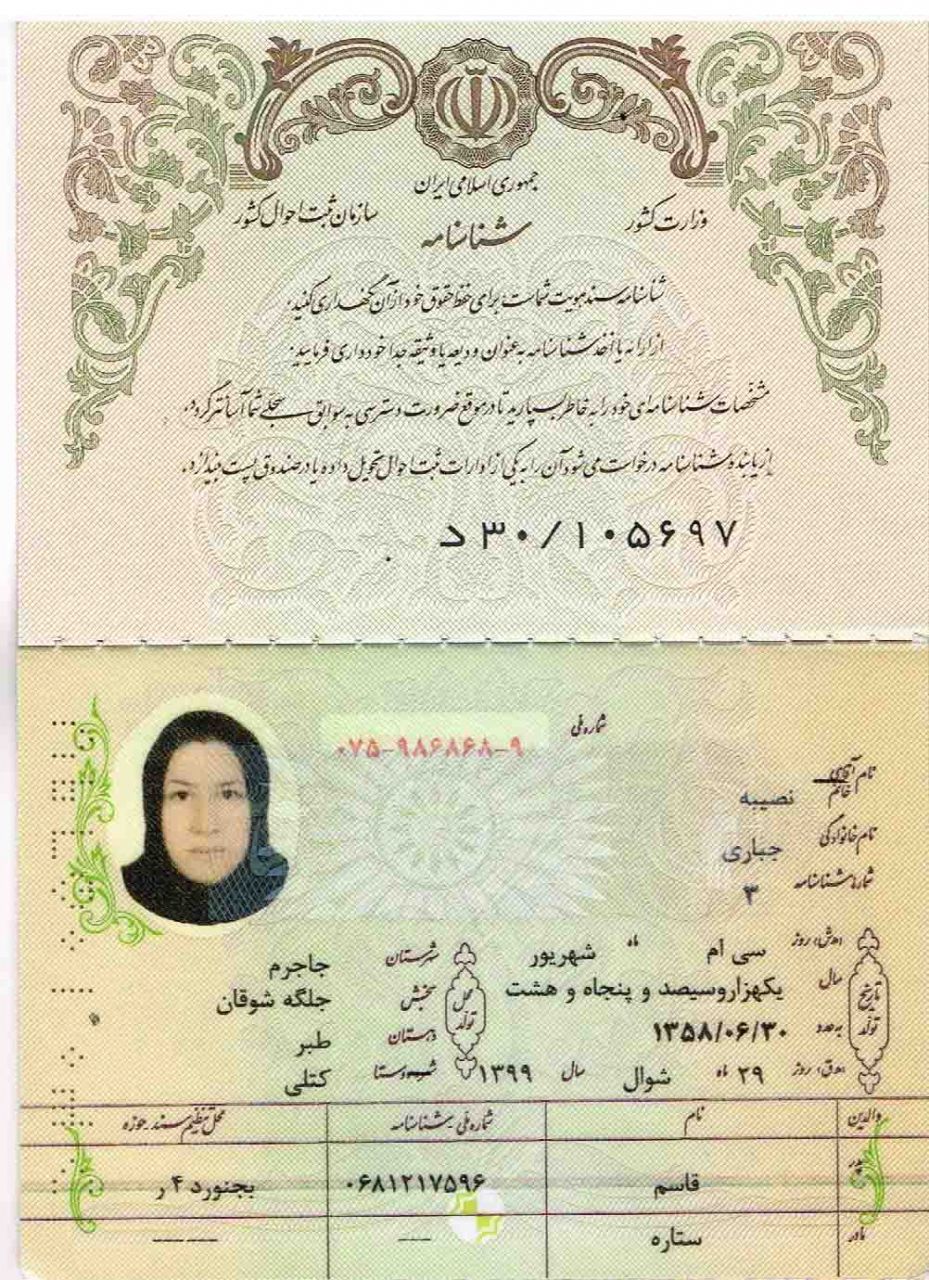 جمهوری اسلامی ایران
وزارت کشور
سازمان ثبت احوال کشور
شناسنامه
شناسنامه سند هویت شماست برای حفظ حقوق خود از آن نگهداری کنید.
از ارائه یا اخذ شناسنامه به عنوان ودیعه یا وثیقه جدا خودداری فرمایید.
مشخصات شناسنامه‌ای خود را به خاطر بسپارید تا در موقع ضرورت دسترسی به سوابق سجلی شما آسانتر گردد.
از یابنده شناسنامه درخواست می شود آن را به یکی از ادارات ثبت احوال تحویل داده یا در صندوق پست بیندازد.
د۳۰/۱۰۵۶۹۷
شماره ملی ۰۷۵-۹۸۶۸۶۸-۹
نام آقای خانم نصیبه
نام خانوادگی جباری
شماره شناسنامه ۳
تاریخ تولد
(ه‍.ش) روز سی ام ماه شهریور
سال یکهزاروسیصد و پنجاه و هشت
به عدد ۱۳۵۸/۰۶/۳۰
(ه‍.ق) روز ۲۹ ماه شوال سال ۱۳۹۹
محل تولد
شهرستان جاجرم
بخش جلگه شوقان
دهستان طبر
شهر/روستا کتلی
والدین نام شماره ملی - شناسنامه محل تنظیم سند حوزه
پدر قاسم ۰۶۸۱۲۱۷۵۹۶ بجنورد ۴ ر
مادر ستاره --- -----